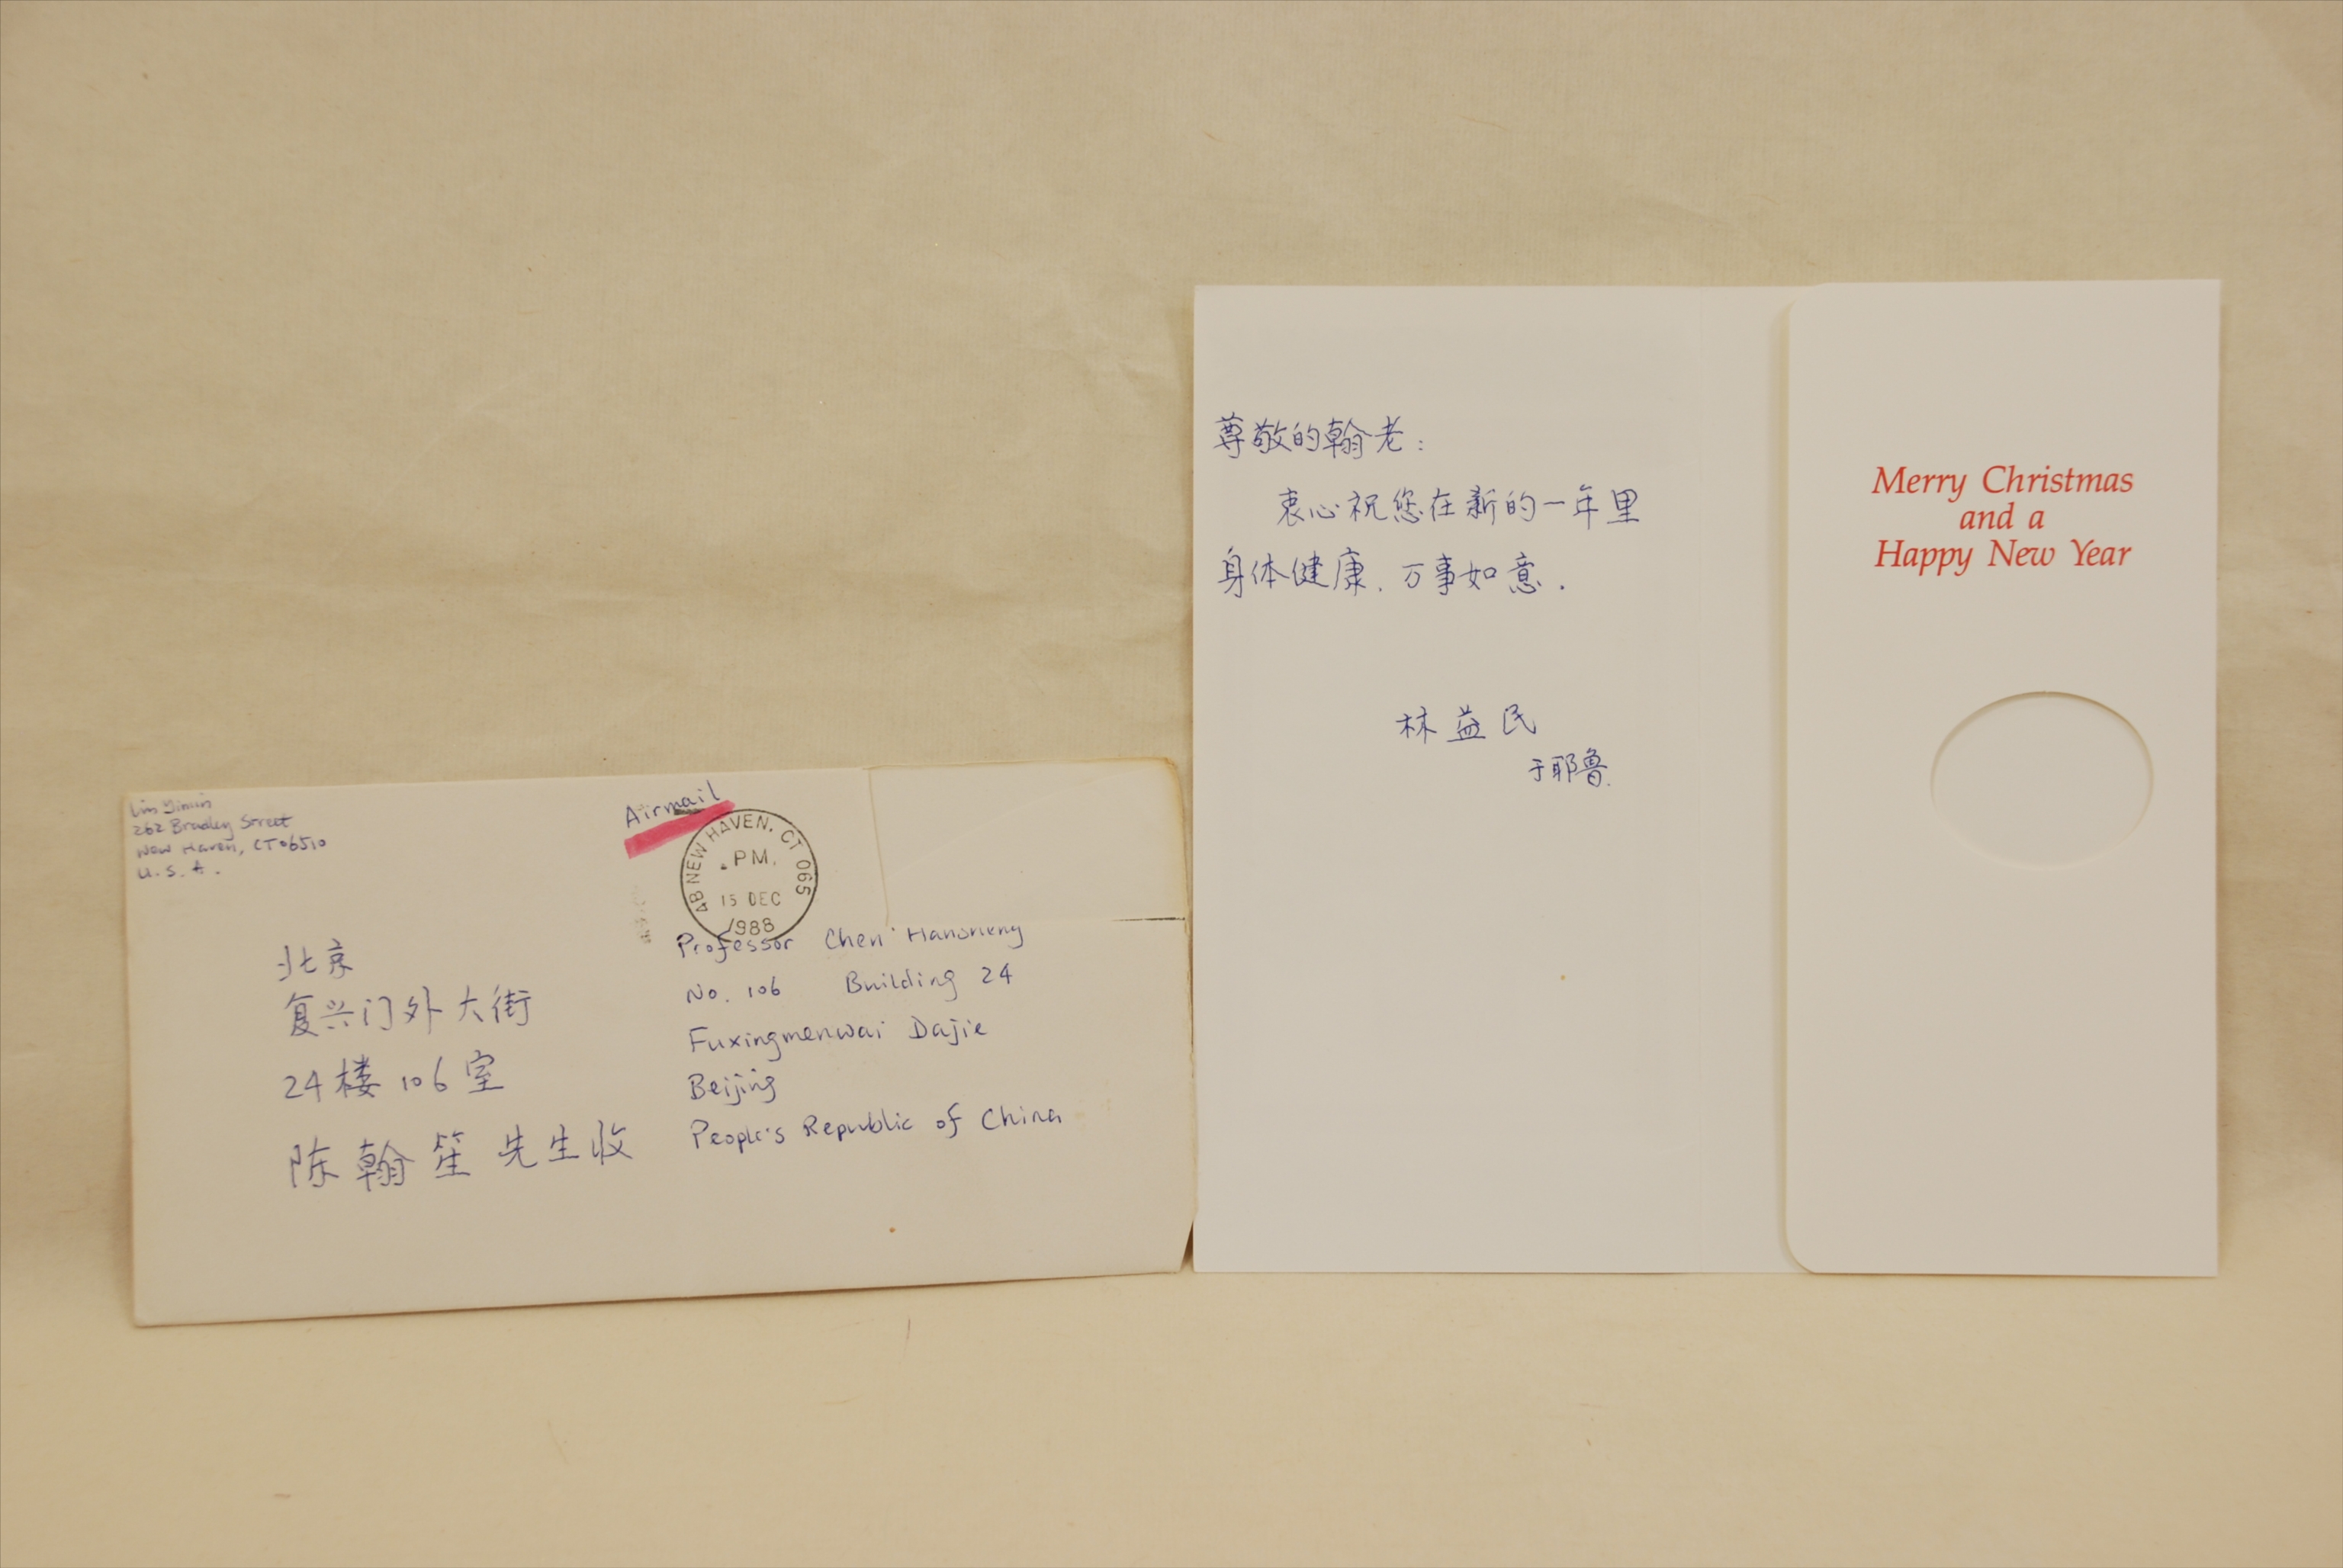 Lin Yimin
262 Bradley Street
New Haven, CT 06510
U.S.A.
Airmail
AB NEW HAVEN, CT 065
PM
15 DEC
1988
北京
复兴门外大街
24楼106室
陈翰笙先生收
Professor Chen Hansheng
No. 106 Building 24
Fuxingmenwai Dajie
Beijing
People's Republic of China
尊敬的翰老：
衷心祝您在新的一年里
身体健康、万事如意.
林益民
于耶鲁.
Merry Christmas
and a
Happy New Year